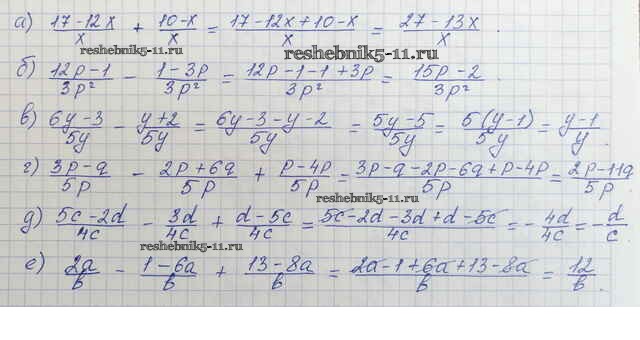 а) (17-12x)/x + (10-x)/x = (17-12x+10-x)/x = (27-13x)/x .
reshebnik5-11.ru reshebnik5-11.ru
б) (12p-1)/3p² - (1-3p)/3p² = (12p-1-1+3p)/3p² = (15p-2)/3p²
в) (6y-3)/5y - (y+2)/5y = (6y-3-y-2)/5y = (5y-5)/5y = 5(y-1)/5y = (y-1)/y .
г) (3p-q)/5p - (2p+6q)/5p + (p-4p)/5p = (3p-q-2p-6q+p-4p)/5p = (2p-11q)/5p .
reshebnik5-11.ru
д) (5c-2d)/4c - 3d/4c + (d-5c)/4c = (5c-2d-3d+d-5c)/4c = -4d/4c = -d/c .
reshebnik5-11.ru
е) 2a/b - (1-6a)/b + (13-8a)/b = (2a-1+6a+13-8a)/b = 12/b .